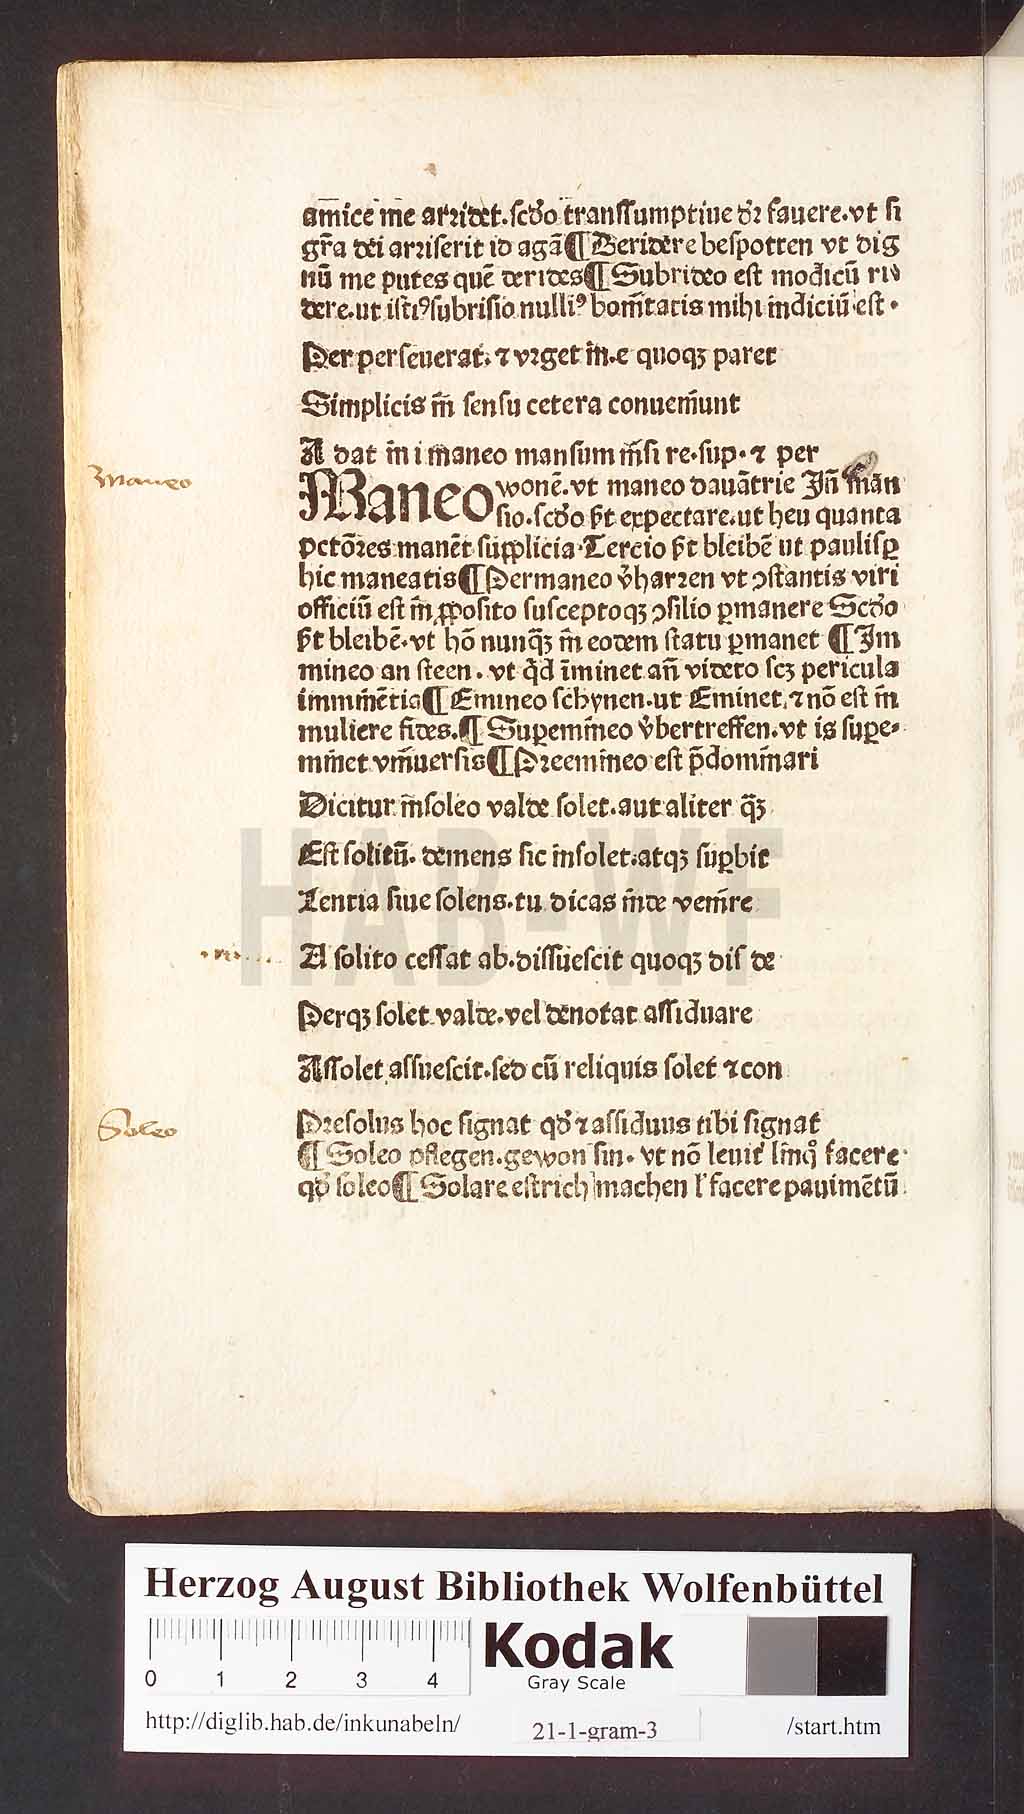 am̄ice me arridet.scd̄o transsumptiue dr̄ fauere.vt si
gr̄a dei arriserit id agā¶Deridere bespotten vt dig
nū me putes quē derides¶Subrideo est modicū ri
dere.ut istiꝰ subrisio nulliꝰ bonītatis mihi indiciū est.
Per perseuerat. ⁊ vrget in.e quoqꝫ paret
Simplicis in̄ sensu cetera conueniunt
A dat in i maneo mansum in̄si re.sup. ⁊ per
Maneo
Maneo wonē.vt maneo dauātrie Jn̄ man
sio.scd̄o ꝑt expectare.ut heu quanta
pctōres manēt supplicia.Tercio ꝑt bleibē ut paulisꝑ
hic maneatis¶Permaneo v̄harren vt ꝯstantis viri
officiū est in̄ ꝓposito susceptoqꝫ ꝯsilio ꝑmanere Scd̄o
ꝑt bleibē.vt hō nunqꝫ in̄ eodem statu ꝑmanet ¶Im
mineo an steen. vt qd̄ īminet an̄ videto scꝫ pericula
imminētia¶Emineo schynen.ut Eminet ⁊ nō est in̄
muliere fides.¶Suꝑemineo v̄bertreffen.vt is suꝑe
minet vniuersis¶Preemineo est p̄dominari
Dicitur insoleo valde solet.aut aliter qꝫ
Est solitū. demens sic insolet.atqꝫ suꝑbit
Tentia siue solens.tu dicas inde venire
A solito cessat ab.dissuescit quoqꝫ dis de
Perqꝫ solet valde.vel denotat assiduare
Assolet assuescit.sed cū reliquis solet ⁊ con
Soleo
Presolus hoc signat qd̄ ⁊ assiduus tibi signat
¶Soleo pflegen.gewon sin. vt nō leuit̄ linqͦ facere
qd̄ soleo¶Solare estrich machen l' facere pauimētū
HAB-WF
Herzog August Bibliothek Wolfenbüttel
0 1 2 3 4
Kodak
Gray Scale
http://diglib.hab.de/inkunabeln/ 21-1-gram-3 /start.htm